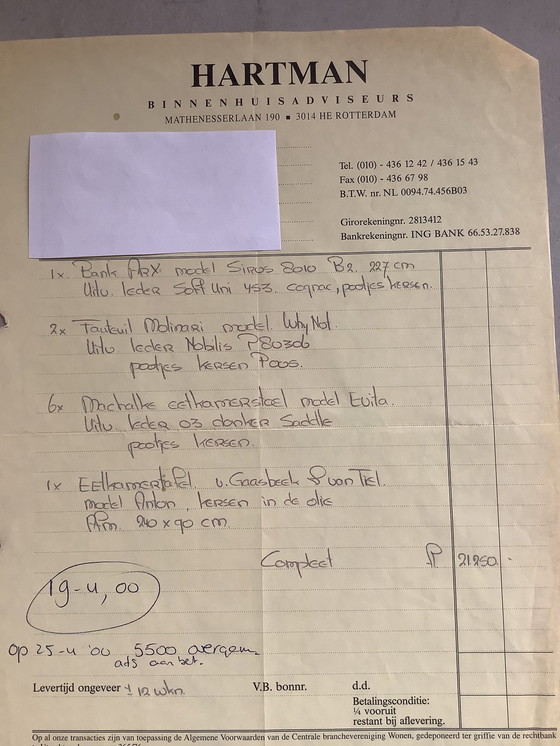 HARTMAN
BINNENHUISADVISEURS
MATHENESSERLAAN 190 ■ 3014 HE ROTTERDAM
Tel. (010) - 436 12 42 / 436 15 43
Fax (010) - 436 67 98
B.T.W. nr. NL 0094.74.456B03
Girorekeningnr. 2813412
Bankrekeningnr. ING BANK 66.53.27.838
1x Bank Arx model Sirus 8010 B2 227 cm
Uitv. leder Soft Uni 453 cognac, pootjes kersen.
2x Fauteuil Molinari model Why Not.
Uitv. leder Nobilis P8030b
pootjes kersen
6x Machalke eethamerstoel model Evita.
Uitv. leder 03 donker Saddle
pootjes kersen.
1x Eethamertafel v. Gaasbeek & van Tiel.
model Anton, kersen in de olie
Afm. 240 x 90 cm
Compleet 21250 -
19-4,00
op 25-4 '00 5500 overgem.
als aanbet.
Levertijd ongeveer ± 12 wkn. V.B. bonnr. d.d.
Betalingsconditie:
¼ vooruit
restant bij aflevering.
Op al onze transacties zijn van toepassing de Algemene Voorwaarden van de Centrale branchevereniging Wonen, gedeponeerd ter griffie van de rechtbank